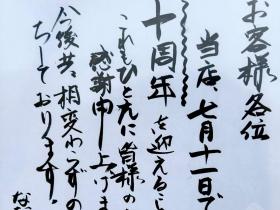 お客様各位
当店、七月十一日で
十周年を迎えるこ
これもひとえに皆様の
感謝申し上げま
今後共、相変わらずの
ちしております。